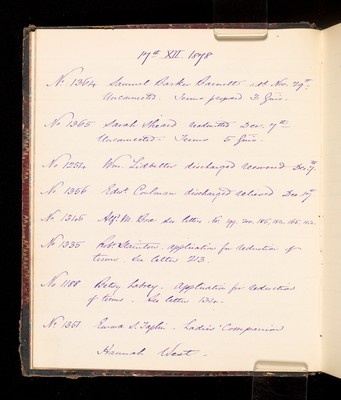 17th XII 1878
No 1364 Samuel Barker Barnett adt. Nov. 29th.
Unconnected. Terms proposed 3 Guis.
No 1365 Sarah Shoard readmitted Dec. 7th.
Unconnected. Terms 5 Guis.
No 1254 Wm. Lidbetter discharged recovered Dec. 7th.
No 1356 Edwd. Coleman discharged relieved Dec. 17th
No 1345 M. See letters
No 1335 Robt. Dainton. Application for reduction of
terms. See letter 213.
No 1188 Betsy. Application for reduction
of terms. See letter 134.
No 1351 Emma S. Taylor. Ladies' Companion
Hannah West.